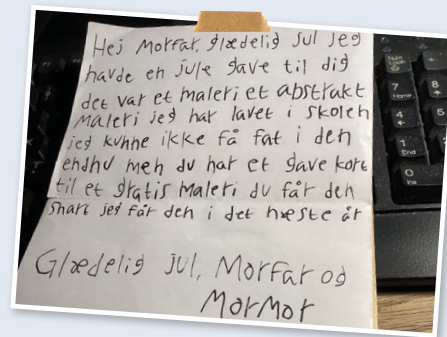 Hej Morfar, glædelig jul jeg
havde en jule gave til dig
det var et maleri et abstrakt
maleri jeg har lavet i skolen
jeg kunne ikke få fat i den
endnu men du har et gave kort
til et gratis maleri du får den
snart jeg får den i det næste år
Glædelig jul, Morfar og
Mormor
Num
Lock
7
Home
8
4
5
1
End
0
Ins